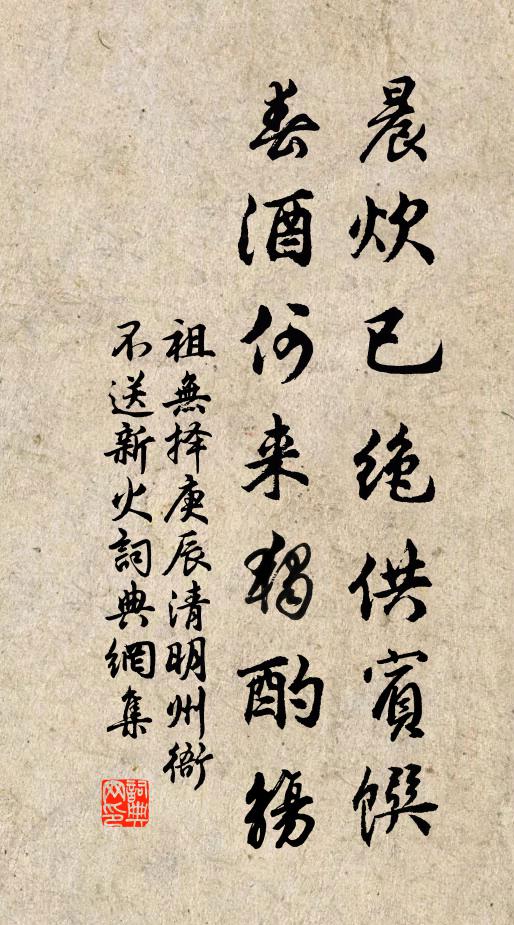 晨炊已绝供賓饌
春酒何来独酌觞
祖無择庚辰清明州衙
不送新火詞典網集
詞典网印